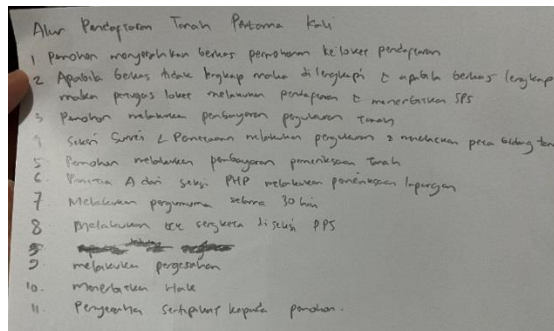 Alur Pendaftaran Tanah Pertama Kali
1 Pemohon menyerahkan berkas permohonan ke loket pendaftaran
2 Apabila berkas tidak lengkap maka dilengkapi & apabila berkas lengkap
maka petugas loket melakukan pendaftaran & menerbitkan SPS
3 Pemohon melakukan pembayaran pengukuran Tanah
4 Seksi Survei & Pemetaan melakukan pengukuran & menerbitkan peta bidang tan
5 Pemohon melakukan pembayaran pemeriksaan Tanah
6 Panitia A dari seksi PHP melakukan pemeriksaan lapangan
7 Melakukan pengumuman selama 30 hari
8 Melakukan cek sengketa di seksi PPS
9 melakukan pengesahan
10. Menerbitkan Hak
11. Penyerahan sertipikat kepada pemohon.